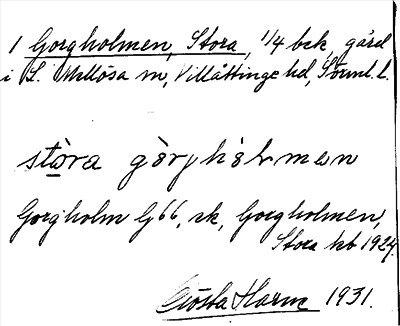 1 Gorgholmen, Stora, 1/4 bsk, gård
i L. Mellösa sn, Villåttinge hd, Sörml. l.
stòra gòrjhòlmen
Gorgholm G 66, sk, Gorgholmen,
Stora kb 1924.
Gösta Harm 1931.